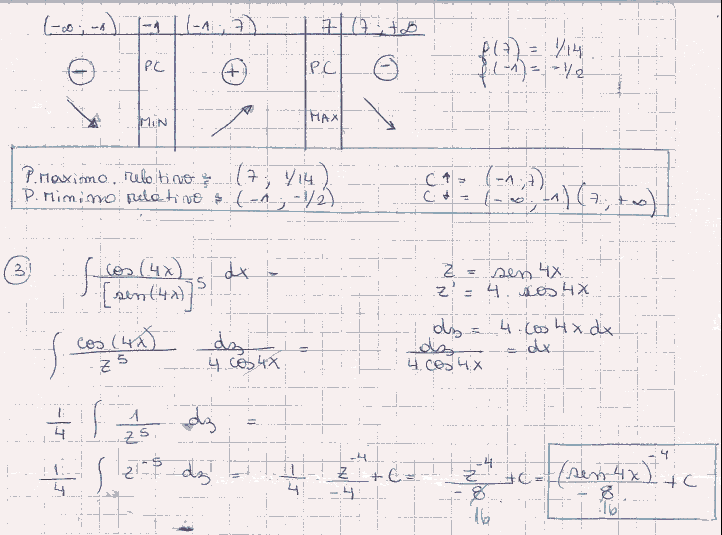 (-∞; -1) -1 (-1, 7) 7 (7; +∞
⊖ PC ⊕ PC ⊖
MIN MAX
f(7) = 1/14
f(-1) = -1/2
P. Maximo. relativo: (7; 1/14) C↑ = (-1, 7)
P. Minimo relativo: (-1; -1/2) C↓ = (-∞; -1)(7; +∞)
③ ∫ cos(4x) / [sen(4x)]^5 dx = z = sen 4x
z' = 4 · cos 4x
dz = 4 · cos 4x dx
∫ cos(4x) / z^5 dz / 4 cos 4x = dz / 4 cos 4x = dx
1/4 ∫ 1/z^5 dz =
1/4 ∫ z^-5 dz = 1/4 z^-4/-4 + C = z^-4/-8 + C = (sen 4x)^-4/-8 + C
16 16